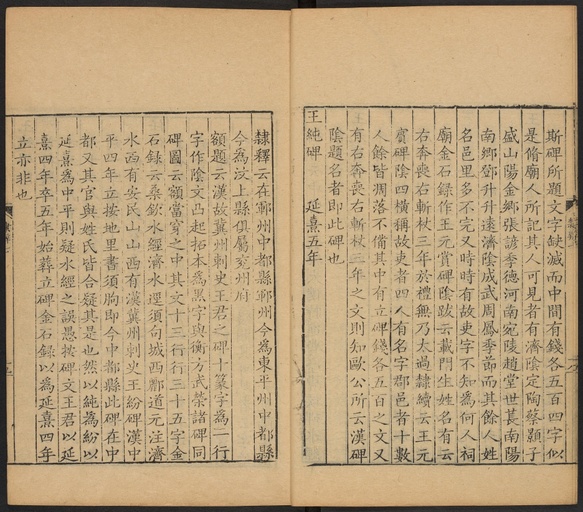 斯碑所題文字缺滅而中間有錢各五百四字似
是脩廟人所記其人可見者有濟陰定陶蔡顥子
盛山陽金鄉張諺季德河南宛陵趙堂世萇南陽
南鄉鄧升升遠濟陰成武周鳳季節而其餘人姓
名邑里多不完又時時有故吏字不知為何人祠
廟金石錄作王元賞碑陰跋云載門生姓名有云
右奔喪右斬杖三年於禮無乃太過隸續云王元
賓碑陰四橫稱故吏者四人有名字郡邑者十數
人餘皆凋落不僃其中有立碑錢各五百之文又
有右奔喪右斬杖三年之文則知歐公所云漢碑
陰題名者即此碑也
王純碑 延熹五年
隸釋云在鄆州中都縣鄆州今為東平州中都縣
今為汶上縣俱屬兖州府
額題云漢故冀州刺史王君之碑十篆字為一行
字作陰文凸起拓本為黑字與衡方武榮諸碑同
碑圖云額當穿之中其文十三行行三十五字金
石錄云桑欽水經濟水逕須句城西酈道元注濟
水西有安民山山西有漢冀州刺史王紛碑漢中
平四年立按地里書須朐即今中都縣此碑在中
都又其官與姓氏皆合疑其是也然以純為紛以
延熹為中平則疑水經之誤愚按碑文王君以延
熹四年卒五年始葬立碑金石錄以為延熹四年
立亦非也